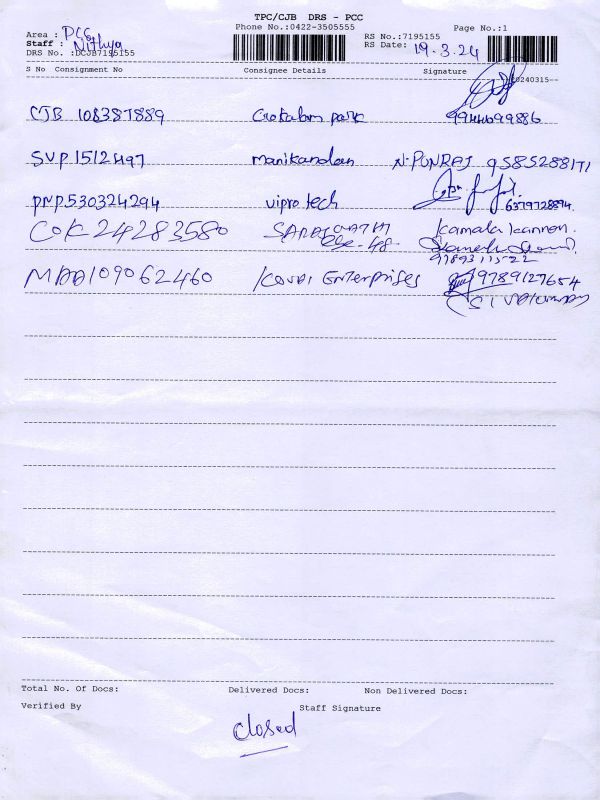 TPC/CJB DRS - PCC
Phone No.:0422-3505555
Page No.:1
Area : PCG
Staff : Nithya
DRS No. :DCJB7195155
RS No.:7195155
RS Date: 19.3.24
S No Consignment No Consignee Details Signature
20240315--
CJB 108387889 park 9944699886
SVP 1512497 manikandan N. PONRAJ 9585288171
PNP 530324294 vipro tech 6379728894
COK 24283580 48 Kamala kannan
9789311522
MAA109062460 KOVAI ENTERPRISES 9789127654
Total No. Of Docs: Delivered Docs: Non Delivered Docs:
Verified By Staff Signature
closed